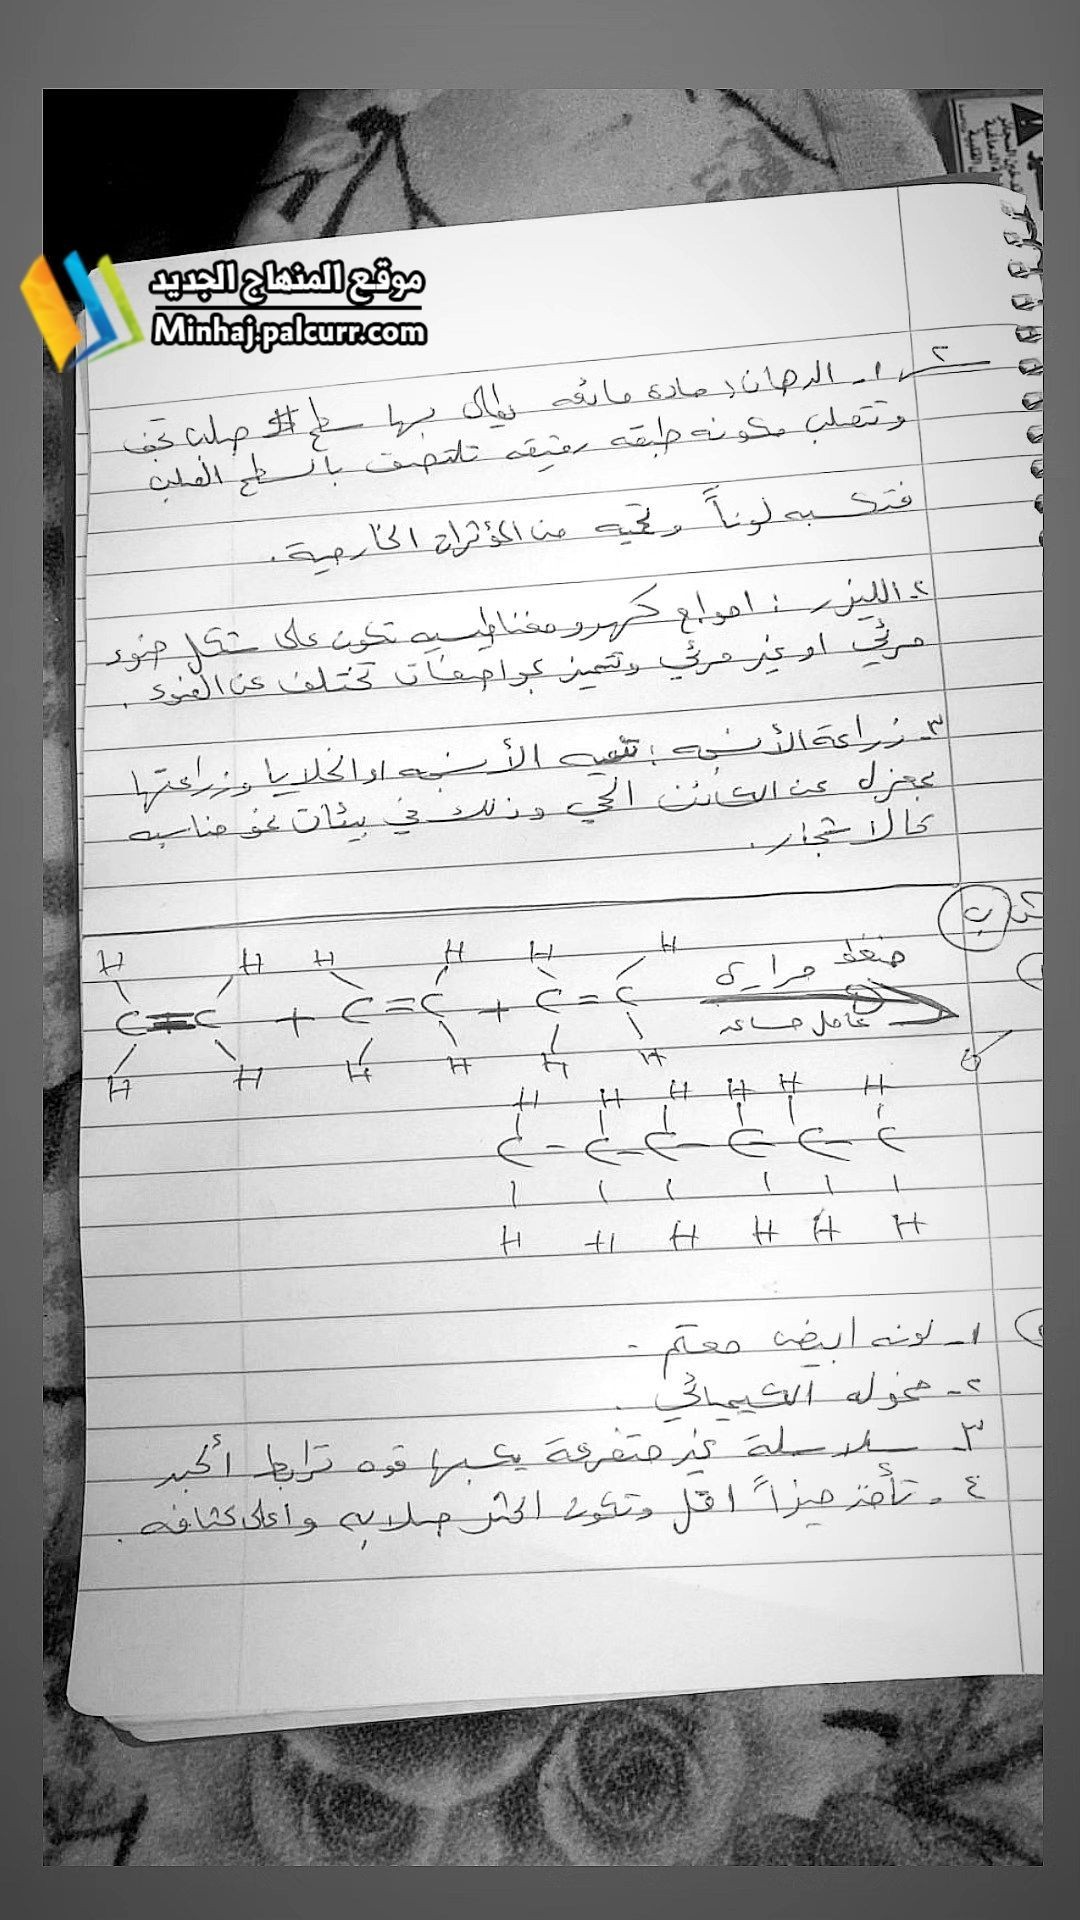 موقع المنهاج الجديد
Minhaj.palcurr.com
٢
١ـ الدهان: مادة مائعه يطلى بها سطح صلب تجف
وتتصلب مكونه طبقه رقيقه تلتصق بالسطح الصلب
فتكسبه لوناً وتحميه من المؤثرات الخارجية.
٢ـ الليزر: امواج كهرومغناطيسيه تكون على شكل ضوء
مرئي او غير مرئي وتتميز بمواصفات تختلف عن الضوء.
٣ـ زراعة الأنسجه: تنميه الأنسجه او الخلايا وزراعتها
بمعزل عن الكائن الحي وذلك في بيئات نمو مناسبه
كالاشجار.
ب
H H H H H H
C = C + C = C + C = C
ضغط حراره
عامل مساعد
H H H H H H
H H H H H H
C - C - C - C - C - C
H H H H H H
١ـ لونه ابيض معتم.
٢ـ خموله الكيميائي.
٣ـ سلاسلة غير متفرعة يكسبها قوه ترابط أكبر
٤ـ تأخذ حيزاً اقل وتكون اكثر صلابه واعلى كثافه.